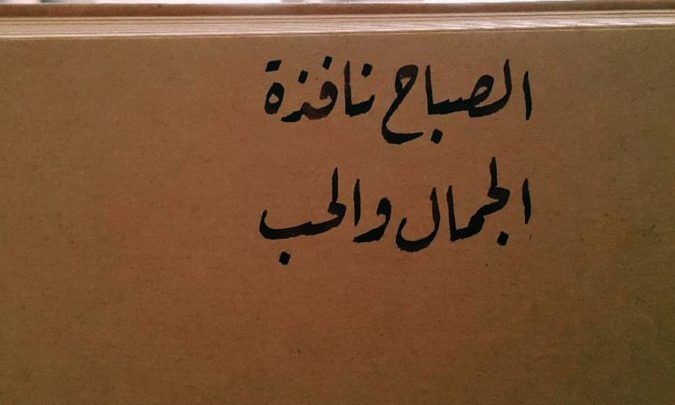 الصباح نافذة
الجمال والحب